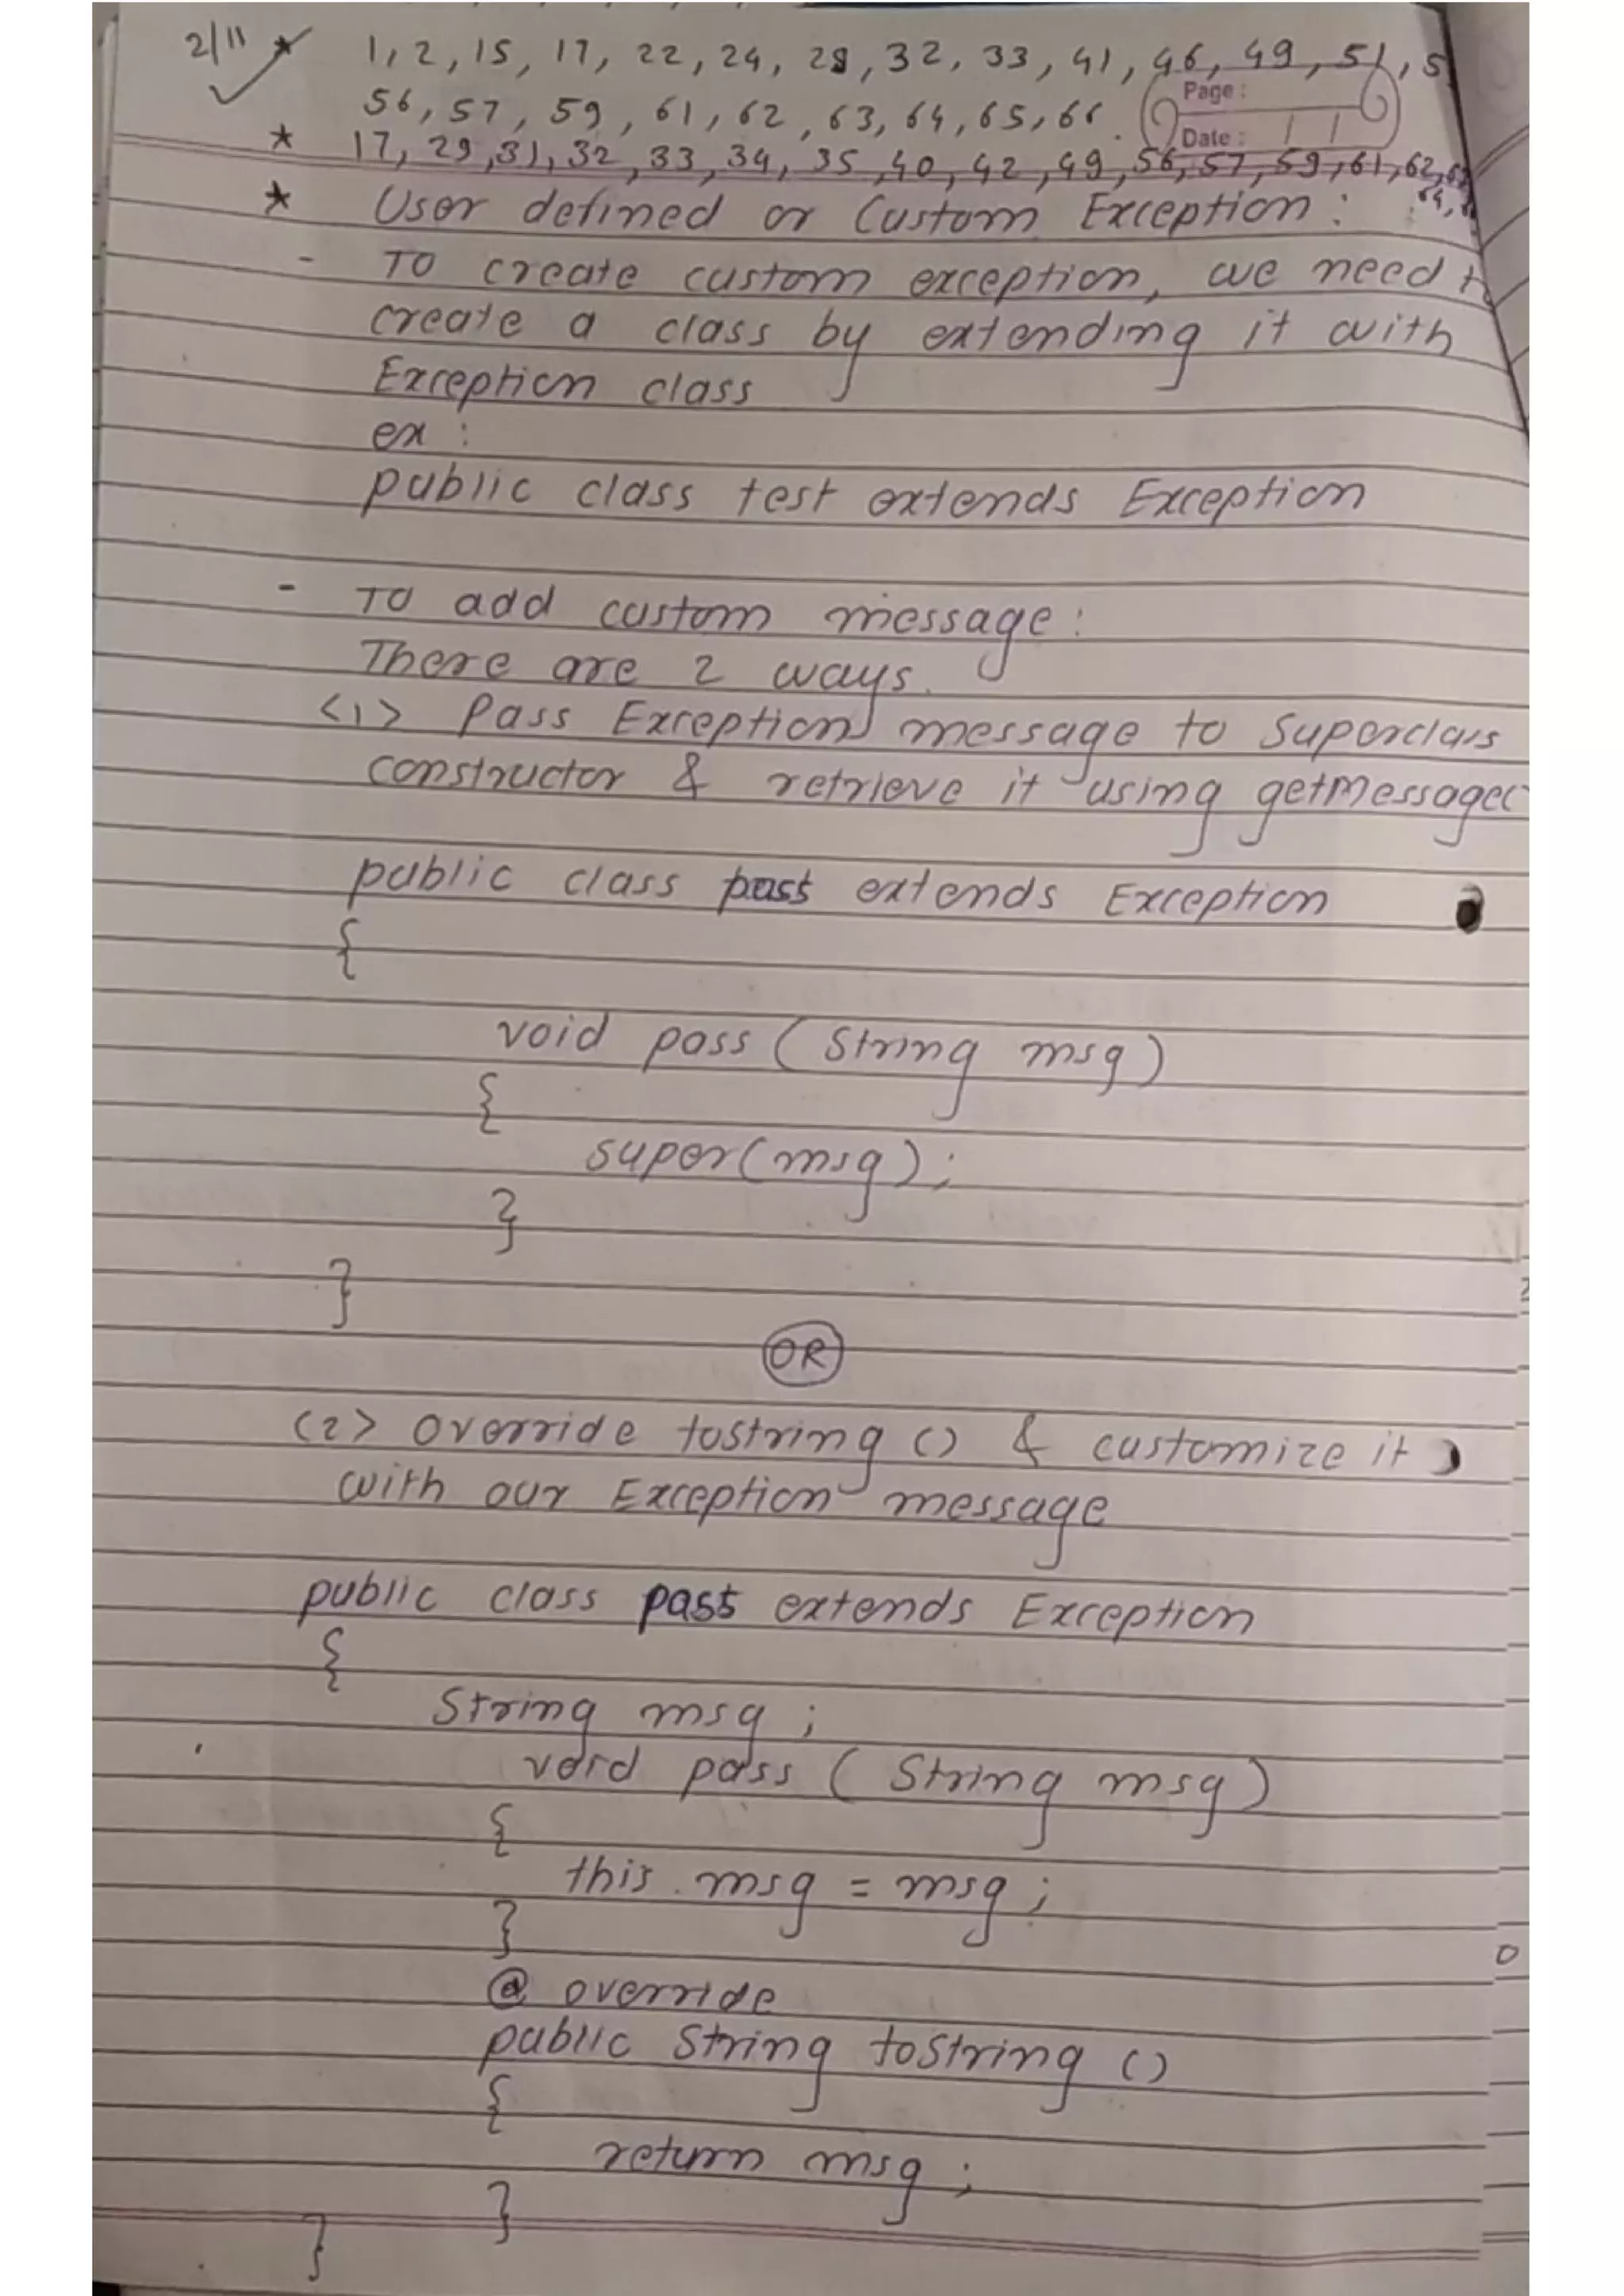 2/11 * 1, 2, 15, 17, 22, 24, 29, 32, 33, 41, 46, 49, 51, 5
Page :
56, 57, 59, 61, 62, 63, 64, 65, 66.
Date : / /
* 17, 29, 31, 32, 33, 34, 35, 40, 42, 49, 56, 57, 59, 61, 62,
64,
* User defined or Custom Exception :
- To create custom exception, we need to
create a class by extending it with
Exception class
ex :
public class test extends Exception
- To add custom message :
There are 2 ways.
<1> Pass Exception message to Superclass
constructor & retrieve it using getMessage(
public class pass extends Exception
{
void pass ( String msg )
{
super(msg) ;
}
}
OR
<2> Override tostring () & customize it
with our Exception message
public class pass extends Exception
{
String msg ;
void pass ( String msg )
{
this . msg = msg ;
}
@ override
public String toString ()
{
return msg ;
}
}